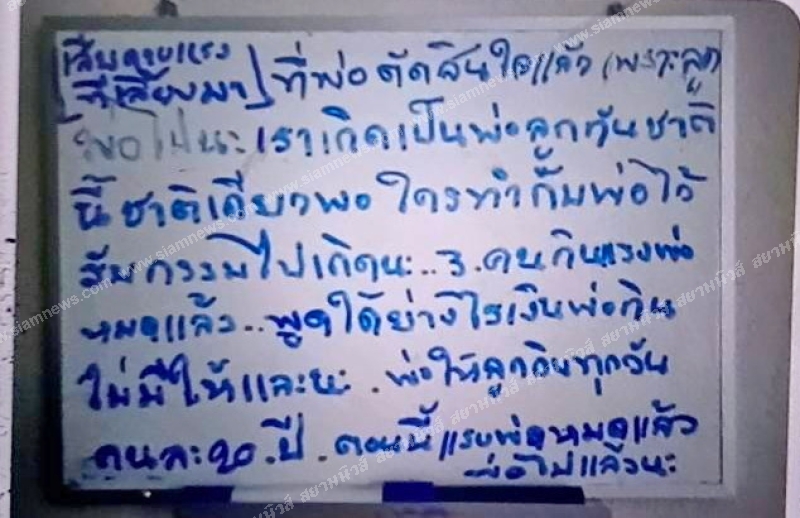 เสียดายแรง
ที่เลี้ยงมา ที่พ่อตัดสินใจแล้ว เพราะลูก
พ่อไปนะ เราเกิดเป็นพ่อลูกกันชาติ
นี้ ชาติเดียวพอ ใครทำกับพ่อไว้
รับกรรมไปเถิดนะ.. 3. คนกินแรงพ่อ
หมดแล้ว.. พูดได้ย่างไรเงินพ่อกิน
ไม่มีให้และนะ. พ่อให้ลูกกินทุกวัน
คนละ 20. ปี. ตอนนี้แรงพ่อหมดแล้ว
พ่อไปแล้วนะ
www.siamnews.com สยามนิวส์